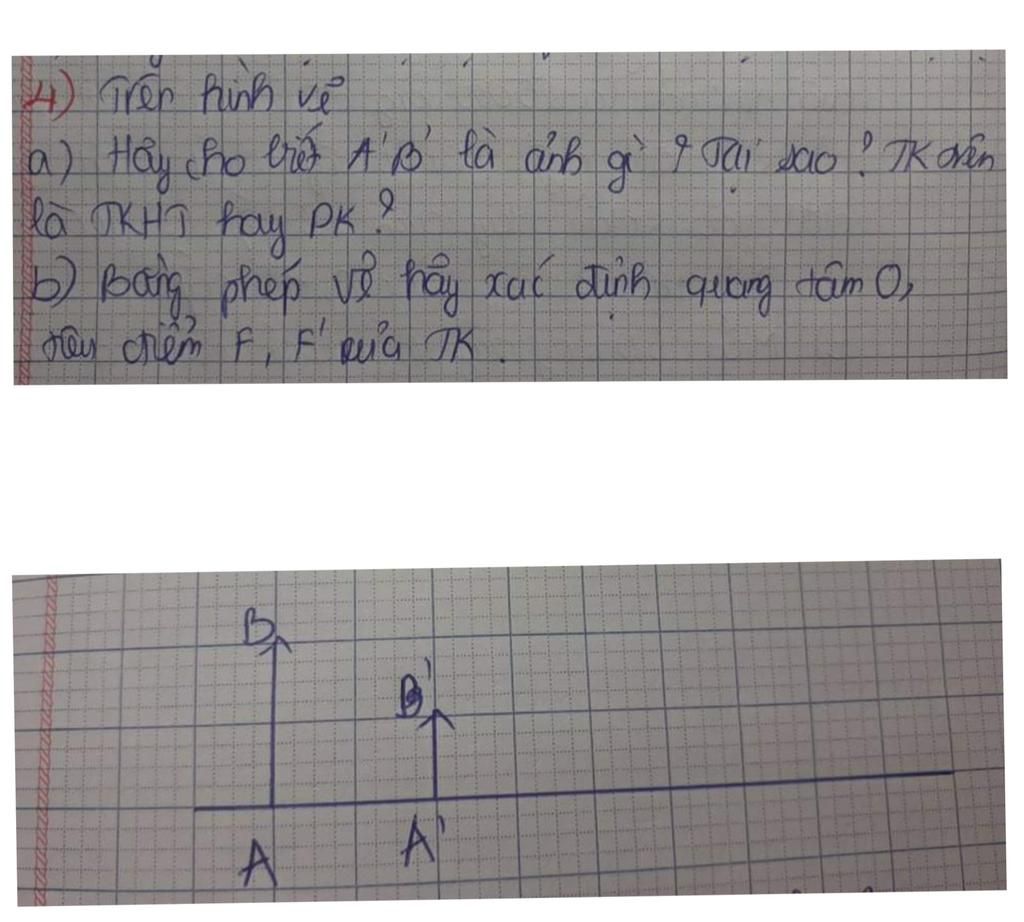 4) Trên hình vẽ
a) Hãy cho biết A'B' là ảnh gì? Tại sao? TK trên
là TKHT hay PK?
b) Bằng phép vẽ hãy xác định quang tâm O,
tiêu điểm F, F' của TK.
B
B'
A
A'